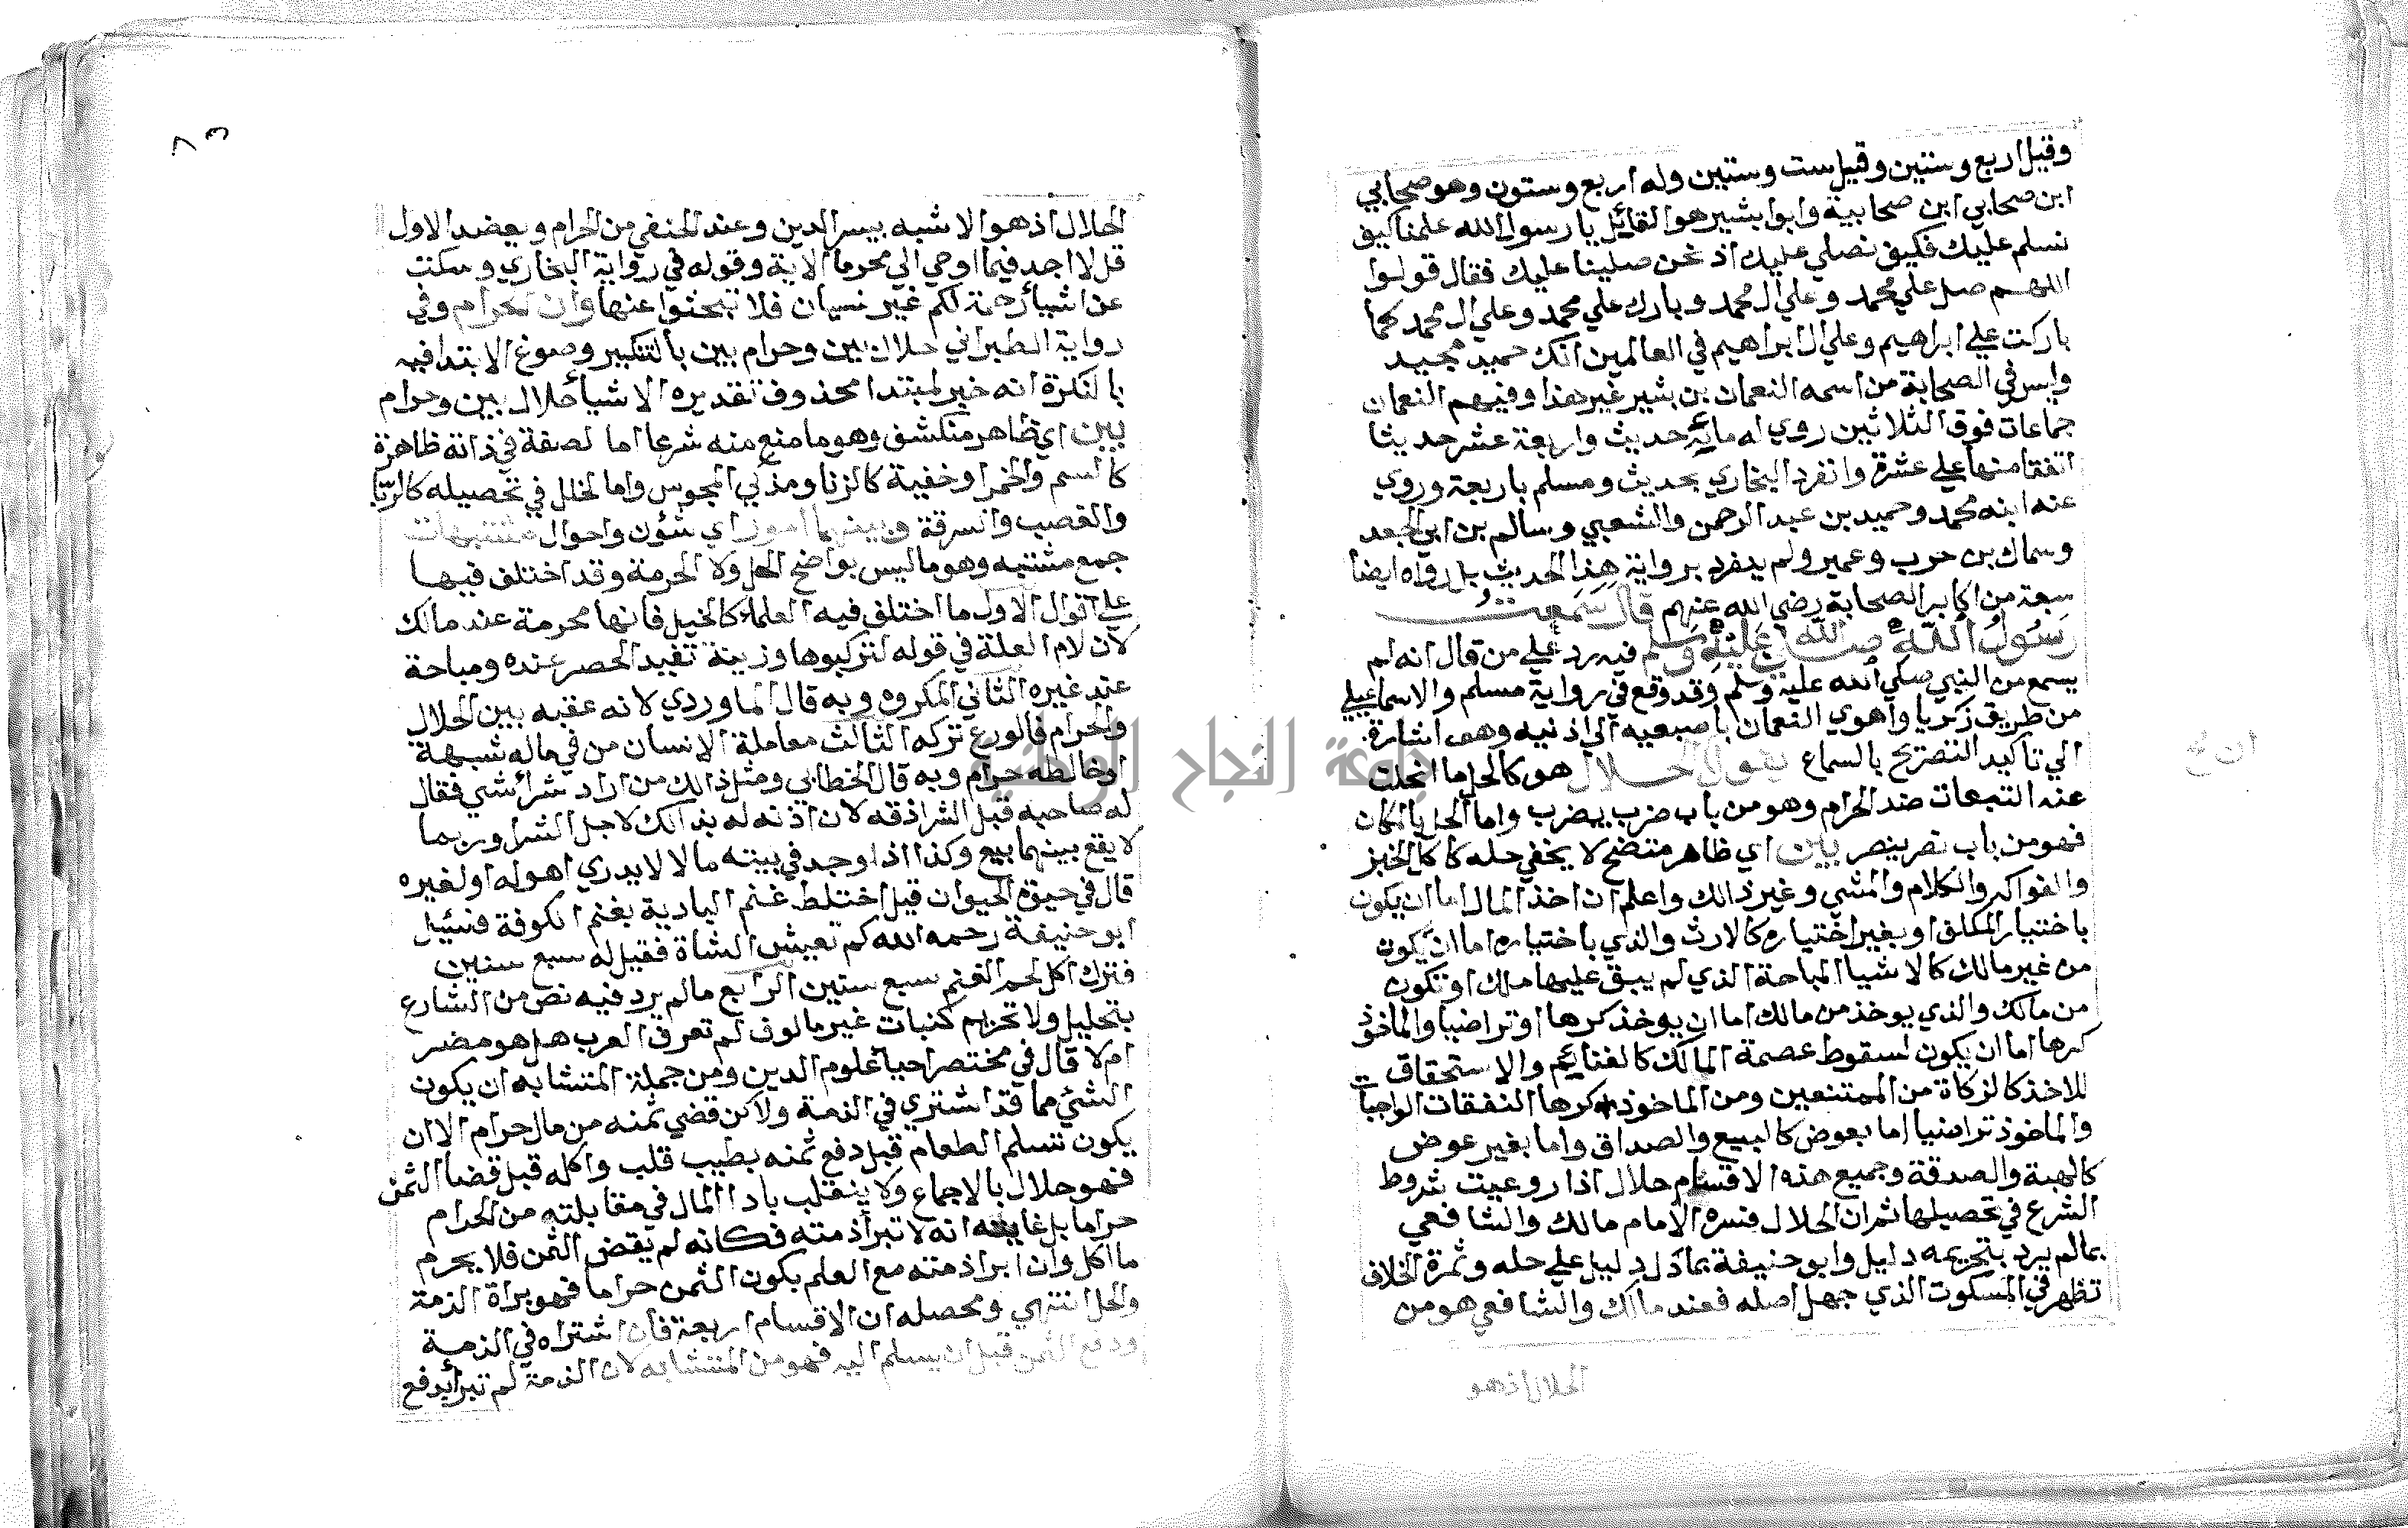 وقيل اربع وستين وقيل ست وستين وله اربع وستون وهو صحابي
ابن صحابي ابن صحابية وابوا بشير هو القائل يا رسول الله علمنا كيف
نسلم عليك فكيف نصلي عليك اذ نحن صلينا عليك فقال قولوا
اللهم صل علي محمد وعلي ال محمد وبارك علي محمد وعلي ال محمد كما
باركت علي ابراهيم وعلي ال ابراهيم في العالمين انك حميد مجيد
وليس في الصحابة من اسمه النعمان بن بشير غير هذا وفيهم النعمان
جماعات فوق الثلاثين روي له مائة حديث واربعة عشر حديثا
اتفقا منها علي عشرة وانفرد البخاري بحديث ومسلم باربعة وروي
عنه ابنه محمد وحميد بن عبد الرحمن والشعبي وسالم بن ابي الجعد
وسماك بن حرب وعمير ولم ينفرد برواية هذا الحديث بل رواه ايضا
سبعة من اكابر الصحابة رضي الله عنهم قال سمعت
رسول الله صلى الله عليه وسلم فيه رد علي من قال انه لم
يسمع من النبي صلي الله عليه وسلم وقد وقع في رواية مسلم والاسماعيلي
من طريق زكريا واهوي النعمان باصبعيه الي اذنيه وهو اشارة
الي تاكيد التصريح بالسماع يقول الحلال هو كالحل ما انحلت
عنه التبعات ضد الحرام وهو من باب ضرب يضرب واما الحل بالمكان
فهو من باب نصر ينصر بين اي ظاهر متضح لا يخفي حله كا كالخبز
والفواكه والكلام والمشي وغير ذالك واعلم ان اخذ المال اما ان يكون
باختيار المكلف او بغير اختياره كالارث والذي باختياره اما ان يكون
من غير مالك كالاشيا المباحة الذي لم يبق عليها ملك او تكون
من مالك والذي يوخذ من مالك اما ان يوخذ كرها او تراضيا والماخوذ
كرها اما ان يكون لسقوط عصمة المالك كالغنائم والاستحقاق
للاخذ كالزكاة من الممتنعين ومن الماخوذ كرها النفقات الواجبات
والماخوذ تراضيا اما بعوض كالبيع والصداق واما بغير عوض
كالهبة والصدقة وجميع هذه الاقسام حلال اذا روعيت شروط
الشرع في تحصيلها ثم ان الحلال فسره الامام مالك والشافعي
بما لم يرد بتحريمه دليل وابو حنيفة بما دل دليل علي حله وثمرة الخلاف
تظهر في المسكوت الذي جهل اصله فعند مالك والشافعي هو من
الحلال اذ هو
الحلال اذ هو الاشبه بيسر الدين وعند الحنفي من الحرام ويعضد الاول
قل لا اجد فيما اوحي الي محرما الاية وقوله في رواية البخاري وسكت
عن اشيا رحمة لكم غير نسيان فلا تبحثوا عنها وان الحرام وفي
رواية الطبراني حلال بين وحرام بين بالتنكير وصوغ الابتدا فيه
بالنكرة انه خبر لمبتدا محذوف تقديره الاشيا حلال بين وحرام
بين اي ظاهر منكشف وهو ما منع منه شرعا اما لصفة في ذاته ظاهرة
كالسم والخمر او خفية كالزنا ومذكي المجوس واما لخلل في تحصيله كالربا
والغصب والسرقة وبينهما امور اي شئون واحوال مشتبهات
جمع مشتبه وهو ما ليس بواضح الحل ولا الحرمة وقد اختلف فيها
علي اقوال الاول ما اختلف فيه العلماء كالخيل فانها محرمة عند مالك
لان لام العلة في قوله لتركبوها وزينة تفيد الحصر عنده ومباحة
عند غيره الثاني المكروه وبه قال الماوردي لانه عقبه بين الحلال
والحرام فالورع تركه الثالث معاملة الانسان من في ماله شبهة
او خالطه حرام وبه قال الخطابي ومثل ذالك من اراد شرا شي فقال
له صاحبه قبل الشرا ذقه لان اذنه له بذالك لاجل الشرا وربما
لا يقع بينهما بيع وكذا اذا وجد في بيته مالا لا يدري اهو له او لغيره
قال في حيوة الحيوان قيل اختلط غنم البادية بغنم الكوفة فسئيل
ابو حنيفة رحمه الله كم تعيش الشاة فقيل له سبع سنين
فترك اكل لحم الغنم سبع سنين الرابع ما لم يرد فيه نص من الشارع
بتحليل ولا تحريم كنبات غير مالوف لم تعرف العرب هل هو مضر
ام لا قال في مختصر احيا علوم الدين ومن جملة المتشابه ان يكون
الشئي مما قد اشتري في الذمة ولاكن قضي ثمنه من مال حرام الا ان
يكون تسلم الطعام قبل دفع ثمنه بطيب قلب واكله قبل قضا الثمن
فهو حلال بالاجماع ولا ينقلب بادا المال في مقابلته من الحرام
حراما بل غايته انه لا تبرا ذمته فكانه لم يقض الثمن فلا يحرم
ما اكل وان ابرا ذمته مع العلم بكون الثمن حراما فهو براة الذمة
والحل انتهي ومحصله ان الاقسام اربعة فان اشتراه في الذمة
ودفع الثمن قبل ان يسلم اليه فهو من المتشابه لان الذمة لم تبرا بدفع
جامعة النجاح الوطنية